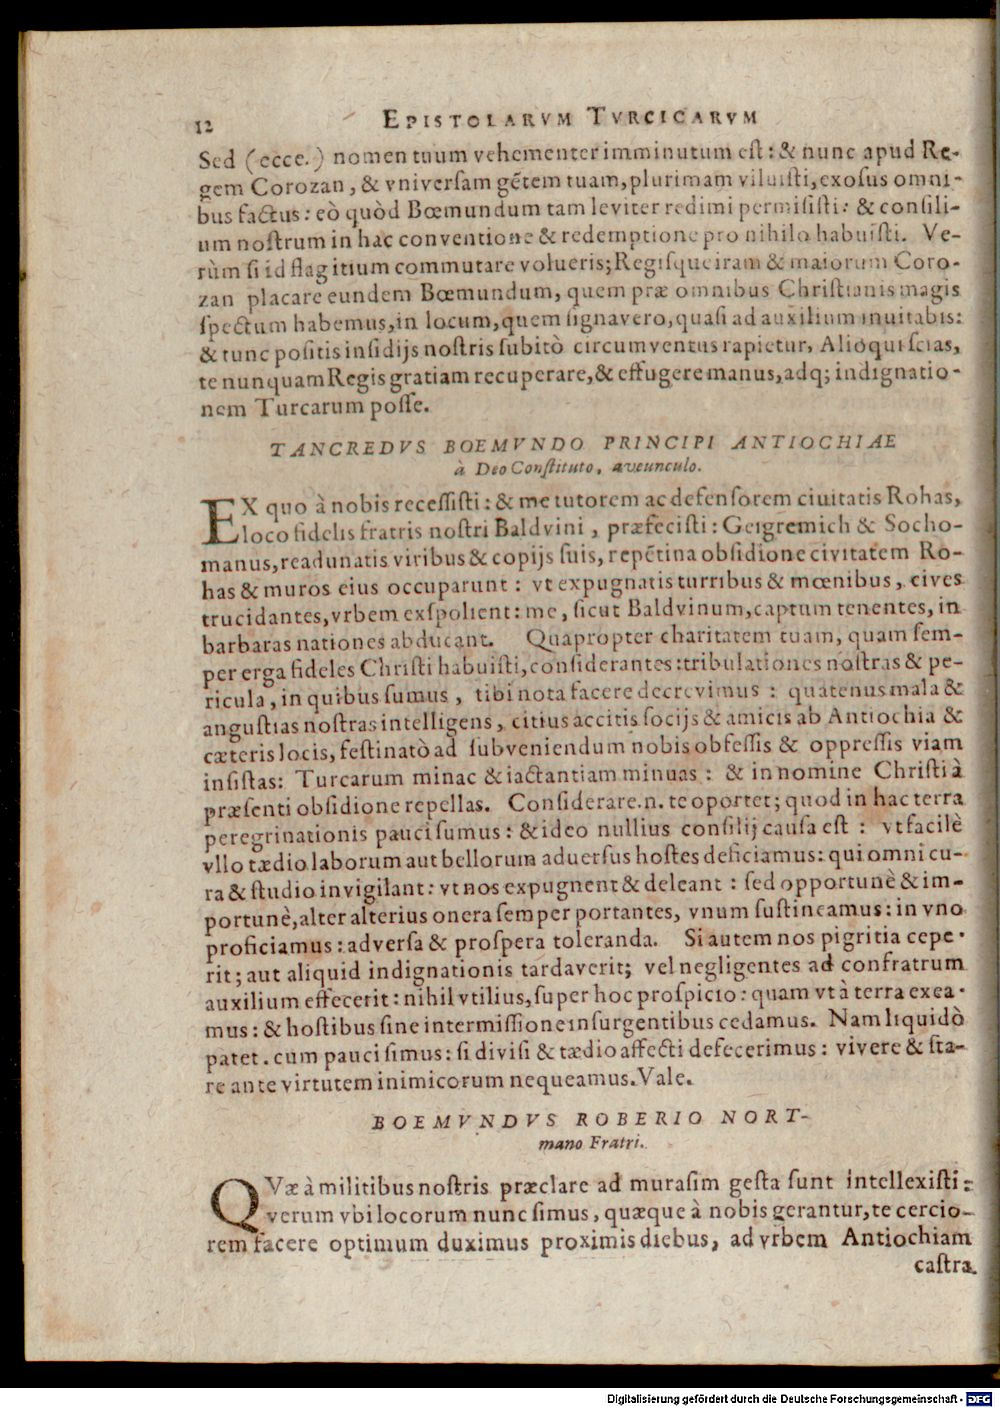 12 EPISTOLARVM TVRCICARVM
Sed (ecce.) nomen tuum vehementer imminutum est: & nunc apud Re-
gem Corozan, & vniversam gẽtem tuam, plurimam viluisti, exosus omni-
bus factus: eò quòd Bœmundum tam leviter redimi permisisti: & consili-
um nostrum in hac conventione & redemptione pro nihilo habuisti. Ve-
rùm si id flagitium commutare volueris; Regisque iram & maiorum Coro-
zan placare eundem Bœmundum, quem præ omnibus Christianis magis
spectum habemus, in locum, quem signavero, quasi ad auxilium inuitabis:
& tunc positis insidijs nostris subitò circumventus rapietur, Alioqui scias,
te nunquam Regis gratiam recuperare, & effugere manus, adq; indignatio-
nem Turcarum posse.
TANCREDVS BOEMVNDO PRINCIPI ANTIOCHIAE
à Deo Constituto, aveunculo.
EX quo à nobis recessisti: & me tutorem ac defensorem ciuitatis Rohas,
loco fidelis fratris nostri Baldvini, præfecisti: Geigremich & Socho-
manus, readunatis viribus & copijs suis, repẽtina obsidione civitatem Ro-
has & muros eius occuparunt: vt expugnatis turribus & mœnibus, cives
trucidantes, vrbem exspolient: me, sicut Baldvinum, captum tenentes, in
barbaras nationes abducant. Quapropter charitatem tuam, quam sem-
per erga fideles Christi habuisti, considerantes: tribulationes nostras & pe-
ricula, in quibus sumus, tibi nota facere decrevimus: quatenus mala &
angustias nostras intelligens, citius accitis socijs & amicis ab Antiochia &
cæteris locis, festinatò ad subveniendum nobis obsessis & oppressis viam
insistas: Turcarum minac & iactantiam minuas: & in nomine Christi à
præsenti obsidione repellas. Considerare.n. te oportet; quod in hac terra
peregrinationis pauci sumus: & ideo nullius consilij causa est: vt facilè
vllo tædio laborum aut bellorum aduersus hostes deficiamus: qui omni cu-
ra & studio invigilant: vt nos expugnent & deleant: sed opportunè & im-
portunè, alter alterius onera semper portantes, vnum sustineamus: in vno
proficiamus: adversa & prospera toleranda. Si autem nos pigritia cepe-
rit; aut aliquid indignationis tardaverit; vel negligentes ad confratrum
auxilium effecerit: nihil vtilius, super hoc prospicio: quam vt à terra exea-
mus: & hostibus sine intermissione insurgentibus cedamus. Nam liquidò
patet. cum pauci simus: si divisi & tædio affecti defecerimus: vivere & sta-
re ante virtutem inimicorum nequeamus. Vale.
BOEMVNDVS ROBERIO NORT-
mano Fratri.
QVæ à militibus nostris præclare ad murasim gesta sunt intellexisti:
verum vbi locorum nunc simus, quæque à nobis gerantur, te cercio-
rem facere optimum duximus proximis diebus, ad vrbem Antiochiam
castra.
Digitalisierung gefördert durch die Deutsche Forschungsgemeinschaft - DFG